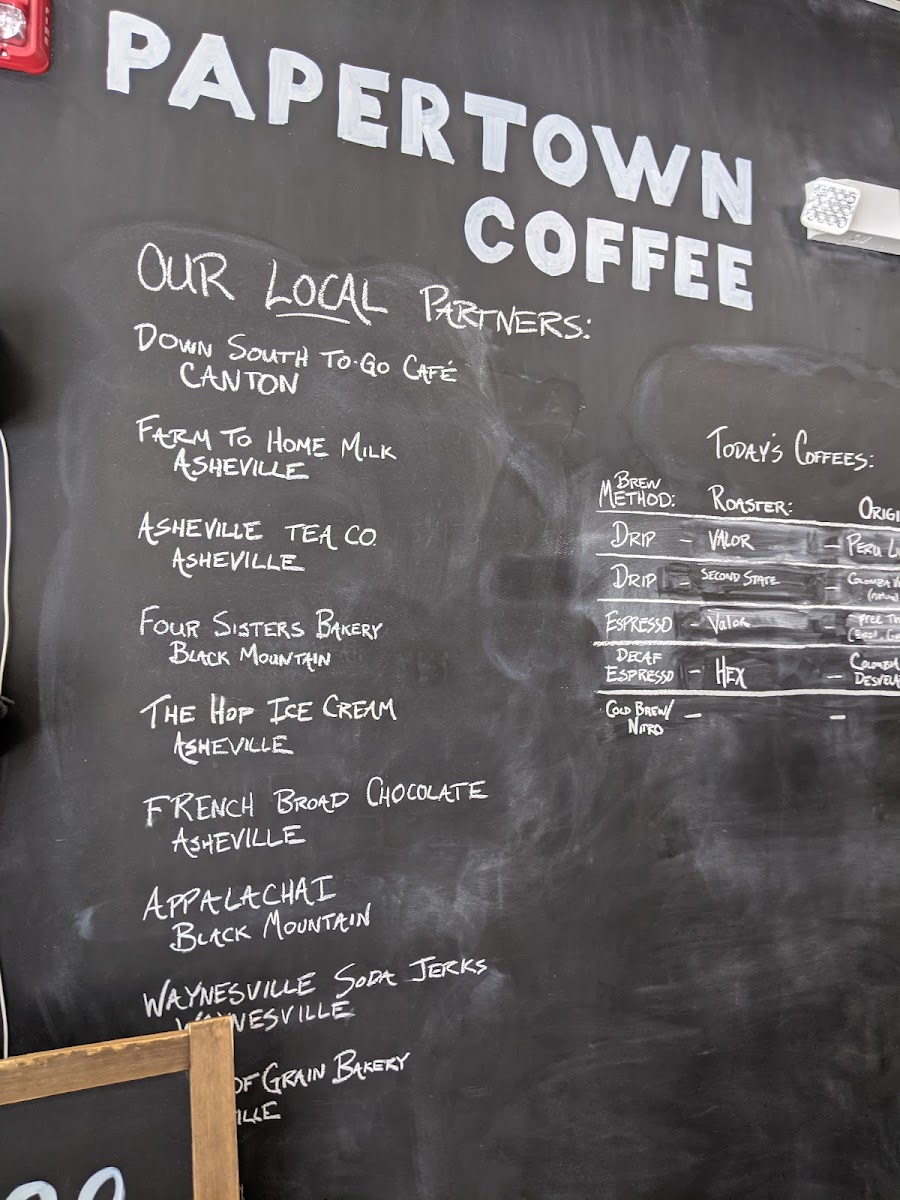 PAPERTOWN
COFFEE
OUR LOCAL PARTNERS:
DOWN SOUTH TO-GO CAFÉ
CANTON
FARM TO HOME MILK
ASHEVILLE
ASHEVILLE TEA CO.
ASHEVILLE
FOUR SISTERS BAKERY
BLACK MOUNTAIN
THE HOP ICE CREAM
ASHEVILLE
FRENCH BROAD CHOCOLATE
ASHEVILLE
APPALACHAI
BLACK MOUNTAIN
WAYNESVILLE SODA JERKS
WAYNESVILLE
OF GRAIN BAKERY
TODAY'S COFFEES:
BREW
METHOD: ROASTER:
DRIP - VALOR - PERU
DRIP - SECOND STATE -
(natural
ESPRESSO - Valor - Free
DECAF
ESPRESSO - HEX -
COLD BREW/
NITRO - -